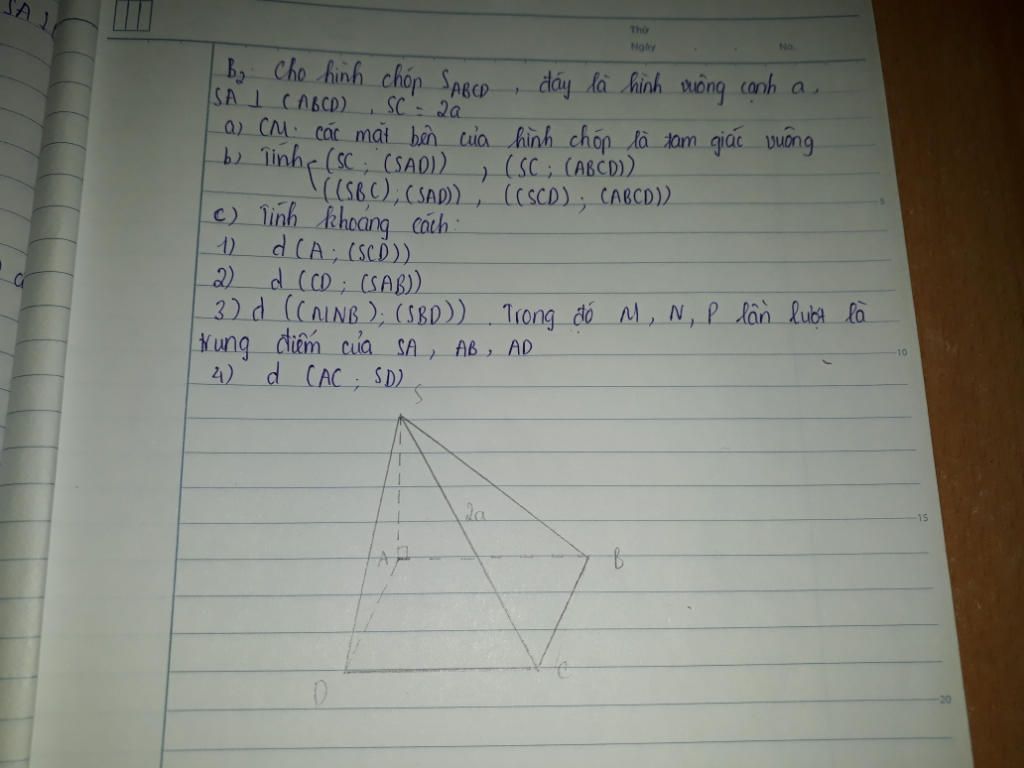 SA ⊥
Thứ
Ngày . . No.
B2: Cho hình chóp SABCD , đáy là hình vuông cạnh a,
SA ⊥ (ABCD) , SC = 2a
a) CM: các mặt bên của hình chóp là tam giác vuông
b) Tính (SC ; (SAD)) , (SC ; (ABCD))
((SBC) ; (SAD)) , ((SCD) ; (ABCD))
5
c) Tính khoảng cách:
1) d (A ; (SCD))
2) d (CD ; (SAB))
3) d ((MNB) ; (SBD)) . Trong đó M, N, P lần lượt là
trung điểm của SA , AB , AD
10
4) d (AC ; SD)
S
2a
15
A
B
D
C
20